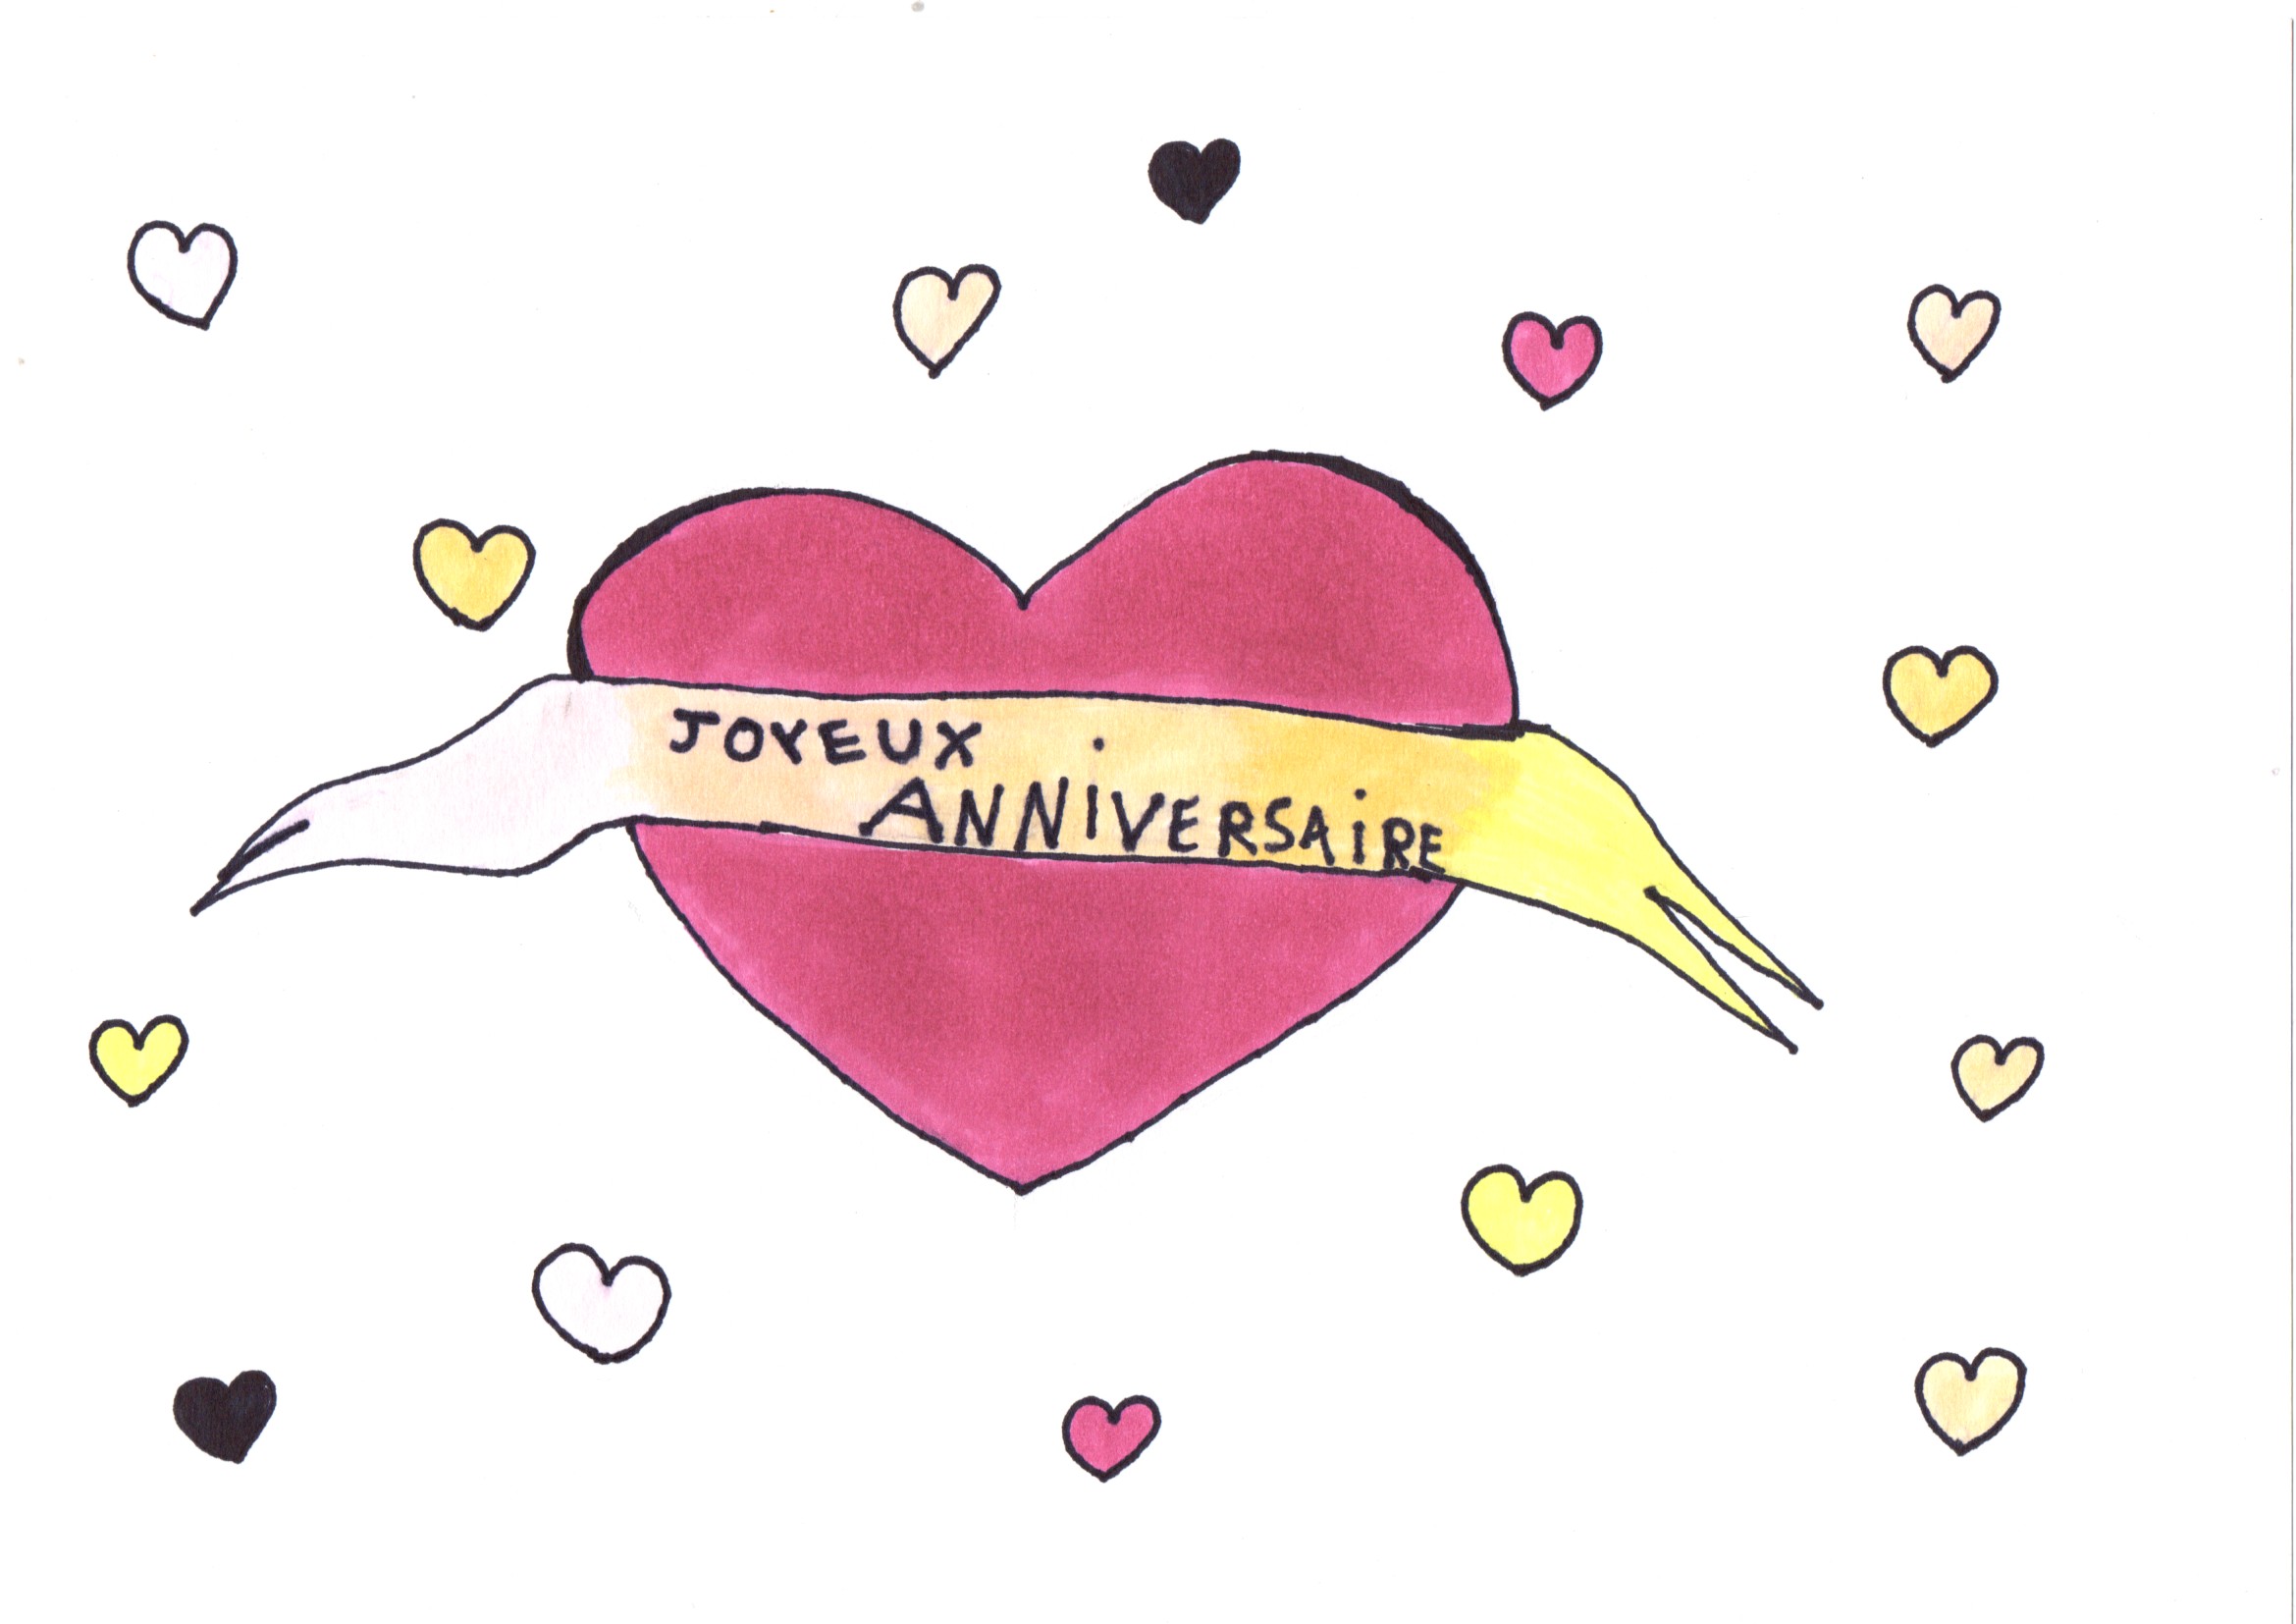 JOYEUX
ANNiVERSAiRE